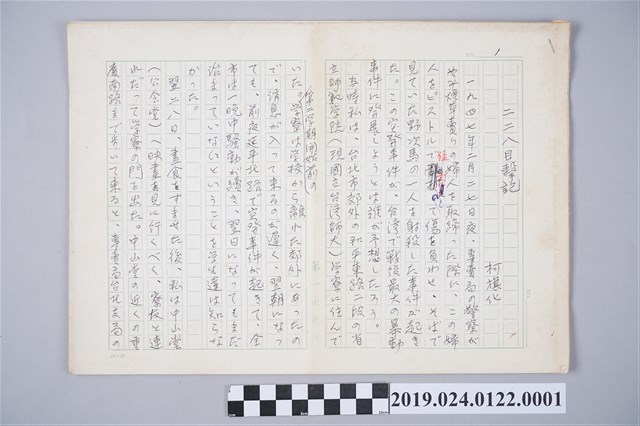 1
二二八目撃記
柯旗化
一九四七年二月二七日夜、専売局の警察が
やみ煙草売りの婦人を取締った際に、この婦
人をピストルで
て傷を負わせ、そばで
見ていた野次馬の一人を射殺した事件が起き
た。この突発事件が、台湾で戦後最大の暴動
事件に発展しようとは誰が予想したろう。
当時私は、台北市郊外の和平東路二段の省
立師範学院(現国立台湾師大)学寮に住んで
いた。(第二学期開始前の)学寮は学校から離れた郊外にあったの
で、消息が入って来るのが遅く、翌朝になっ
ても、前夜延平北路で突発事件が起きて、全
市は一晩中騒動が続き、翌日になってもまだ
治まっていないということを学生達は知らな
かった。
翌二八日、昼食をすませた後、私は中山堂
(公会堂)へ映画を見に行くべく、寮友と連
れだって学寮の門を出た。中山堂の近くの重
慶南路まで歩いて来ると、専売局台北支局の
2019.024.0122.0001